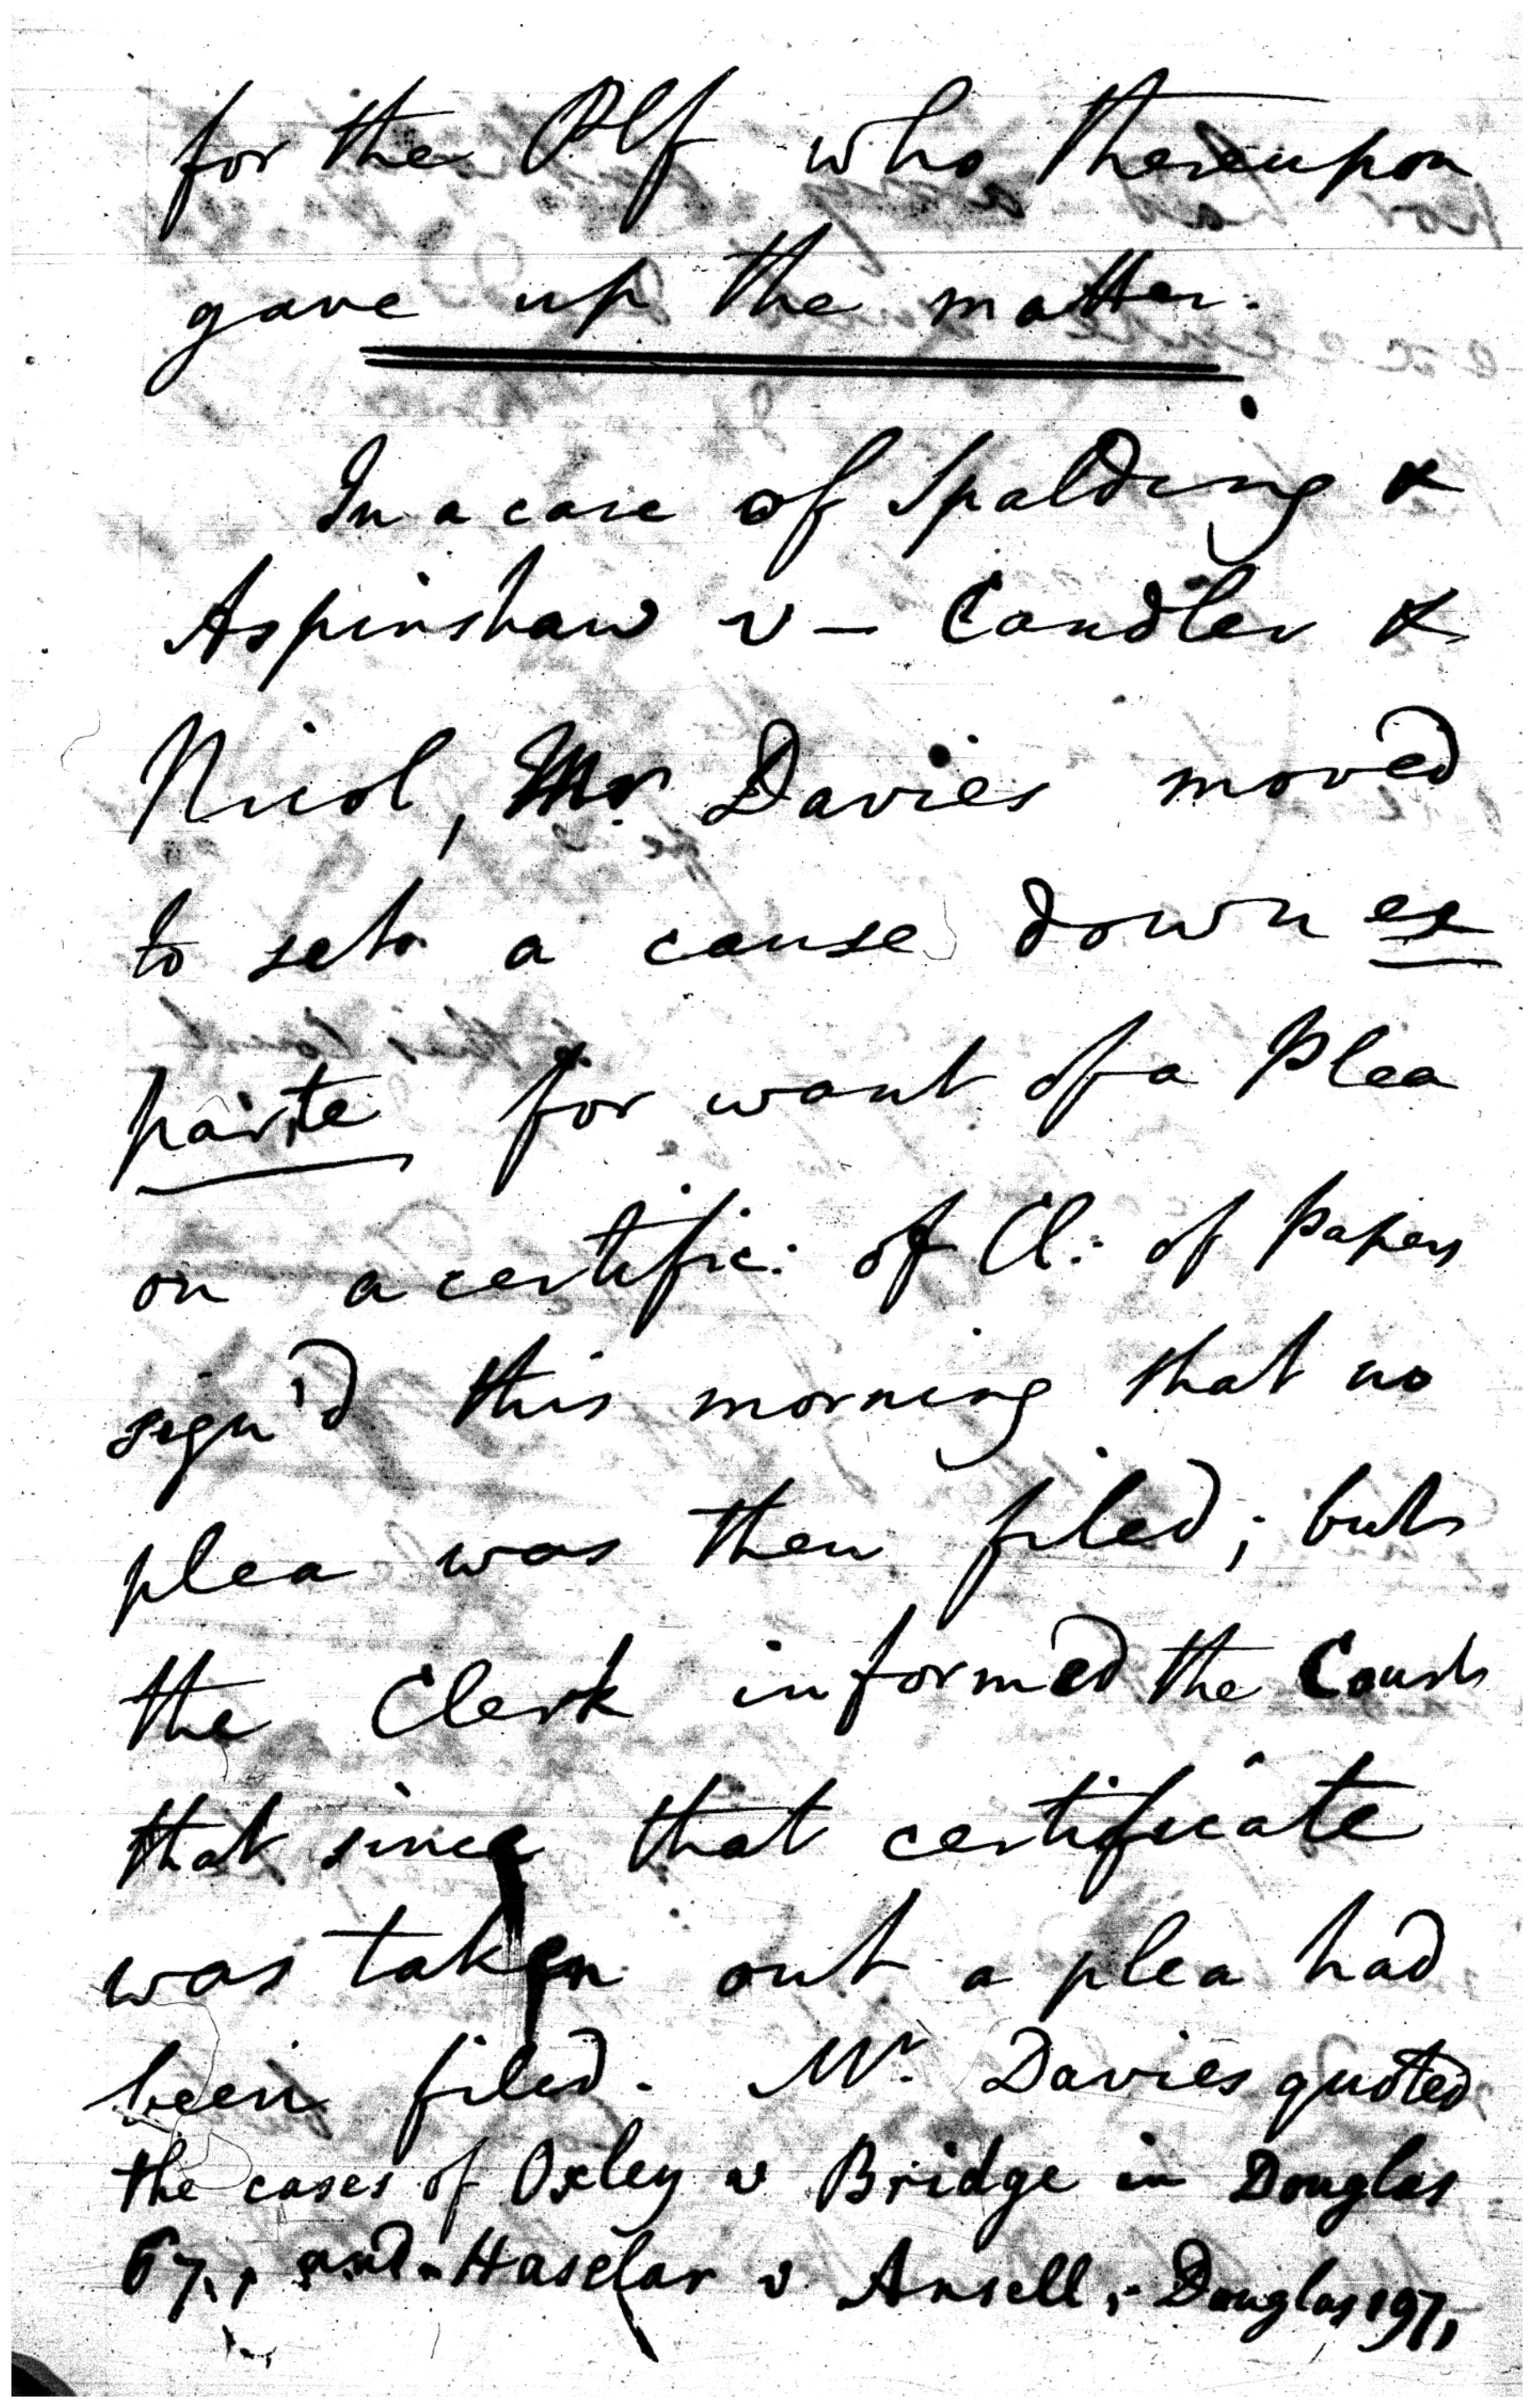 for the Plf who thereupon
gave up the matter.
In a case of Spalding &
Aspinshaw v – Candler &
Nicol, Mr. Davies moved
to set a cause down ex
parte for want of a Plea
on a certific: of Cl: of Papers
sign'd this morning that no
plea was then filed; but
the Clerk informed the Court
that since that certificate
was taken out a plea had
been filed. Mr. Davies quoted
the cases of Oxley v Bridge in Douglas
67., and Haselar v Ansell, Douglas 197,